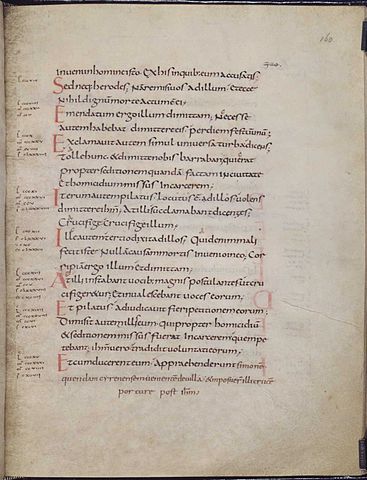 160
inveni in homine isto ex his in quib; eum accusatis;
Sed nec herodes; Nam remisi vos ad illum et ecce
Nihil dignum morte actum ei;
Emendatum ergo illum dimittam; Necesse
autem habebat dimittere eis per diem festū unū;
Exclamavit autem simul universa turba dicens;
Tolle hunc & dimitte nobis barraban; qui erat
propter seditionem quandā factam in civitate
et homicidium missus In carcerem;
Iterum autem pilatus locutus ē ad illos volens
dimittere ihm; At illi succlamabant dicentes;
Crucifige Crucifige illum;
Ille autem tertio dixit ad illos; Quid enim mali
fecit iste Nulla causa mortis invenio in eo; Cor
ripiā ergo illum et dimittam;
At illi instabant vocib; magnis postulantes ut cru
cifigeretur; et invalescebant voces eorum;
Et pilatus adiudicavit fieri petitionem eorum;
Dimisit autem illis eum qui propter homicidiū
& seditionem missus fuerat In carcerem quem pe
tebant; ihm vero tradidit voluntati eorum;
Et cum ducerent eum; Apprehenderunt simone
quendam cyrenensem venientē de villa & imposuer illi cruce
portare post ihm;